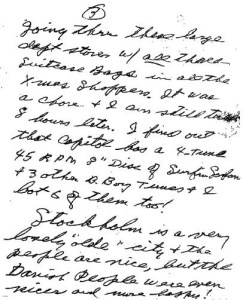 ③
Going thru these large
dept stores w/ all those
Suitcase Bags in also the
X-mas shoppers. It was
a chore & I am still
8 hours later. I find out
that Capitol has a 4-Tune
45 R.P.M. 8" Disc of Surfin Safari
& 3 other B. Boy Tunes & I
bot 6 of them too!
Stockholm is a very
lovely "olde" city & the
people are nice, but the
Danish People were even
nicer and more